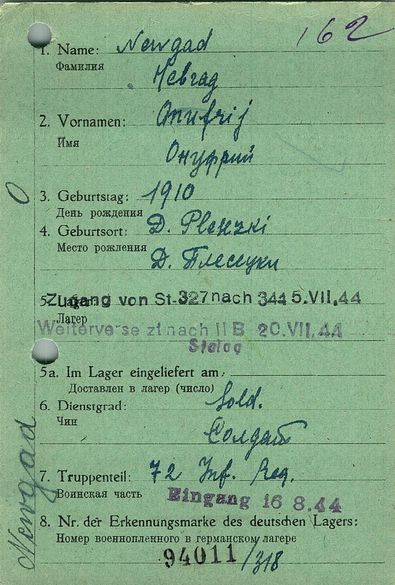 162
1. Name: Newgad
Фамилия Невгад
2. Vornamen: Onufrij
Имя Онуфрий
3. Geburtstag: 1910
День рождения
4. Geburtsort: D. Pleszki
Место рождения Д. Плесецки
5. Zugang von St-327 nach 344 5.VII.44
Лагер
Weiterverse zt nach II B 20.VII.44
Stalag
5a. Im Lager eingeliefert am:
Доставлен в лагер (число)
6. Dienstgrad: Sold.
Чин Солдат
7. Truppenteil: 72 Inf. Reg.
Воинская часть Eingang 16 8.44
8. Nr. der Erkennungsmarke des deutschen Lagers:
Номер военнопленного в германском лагере
94011/318
Newgad